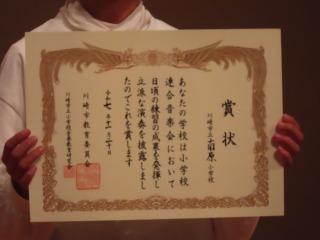 賞状
川崎市立 原小学校
あなたの学校は小学校
連合音楽会において
日頃の練習の成果を発揮し
立派な演奏を披露しまし
たのでこれを賞します
令和七年十一月 日
川崎市教育委員会
川崎市立小学校音楽教育研究会